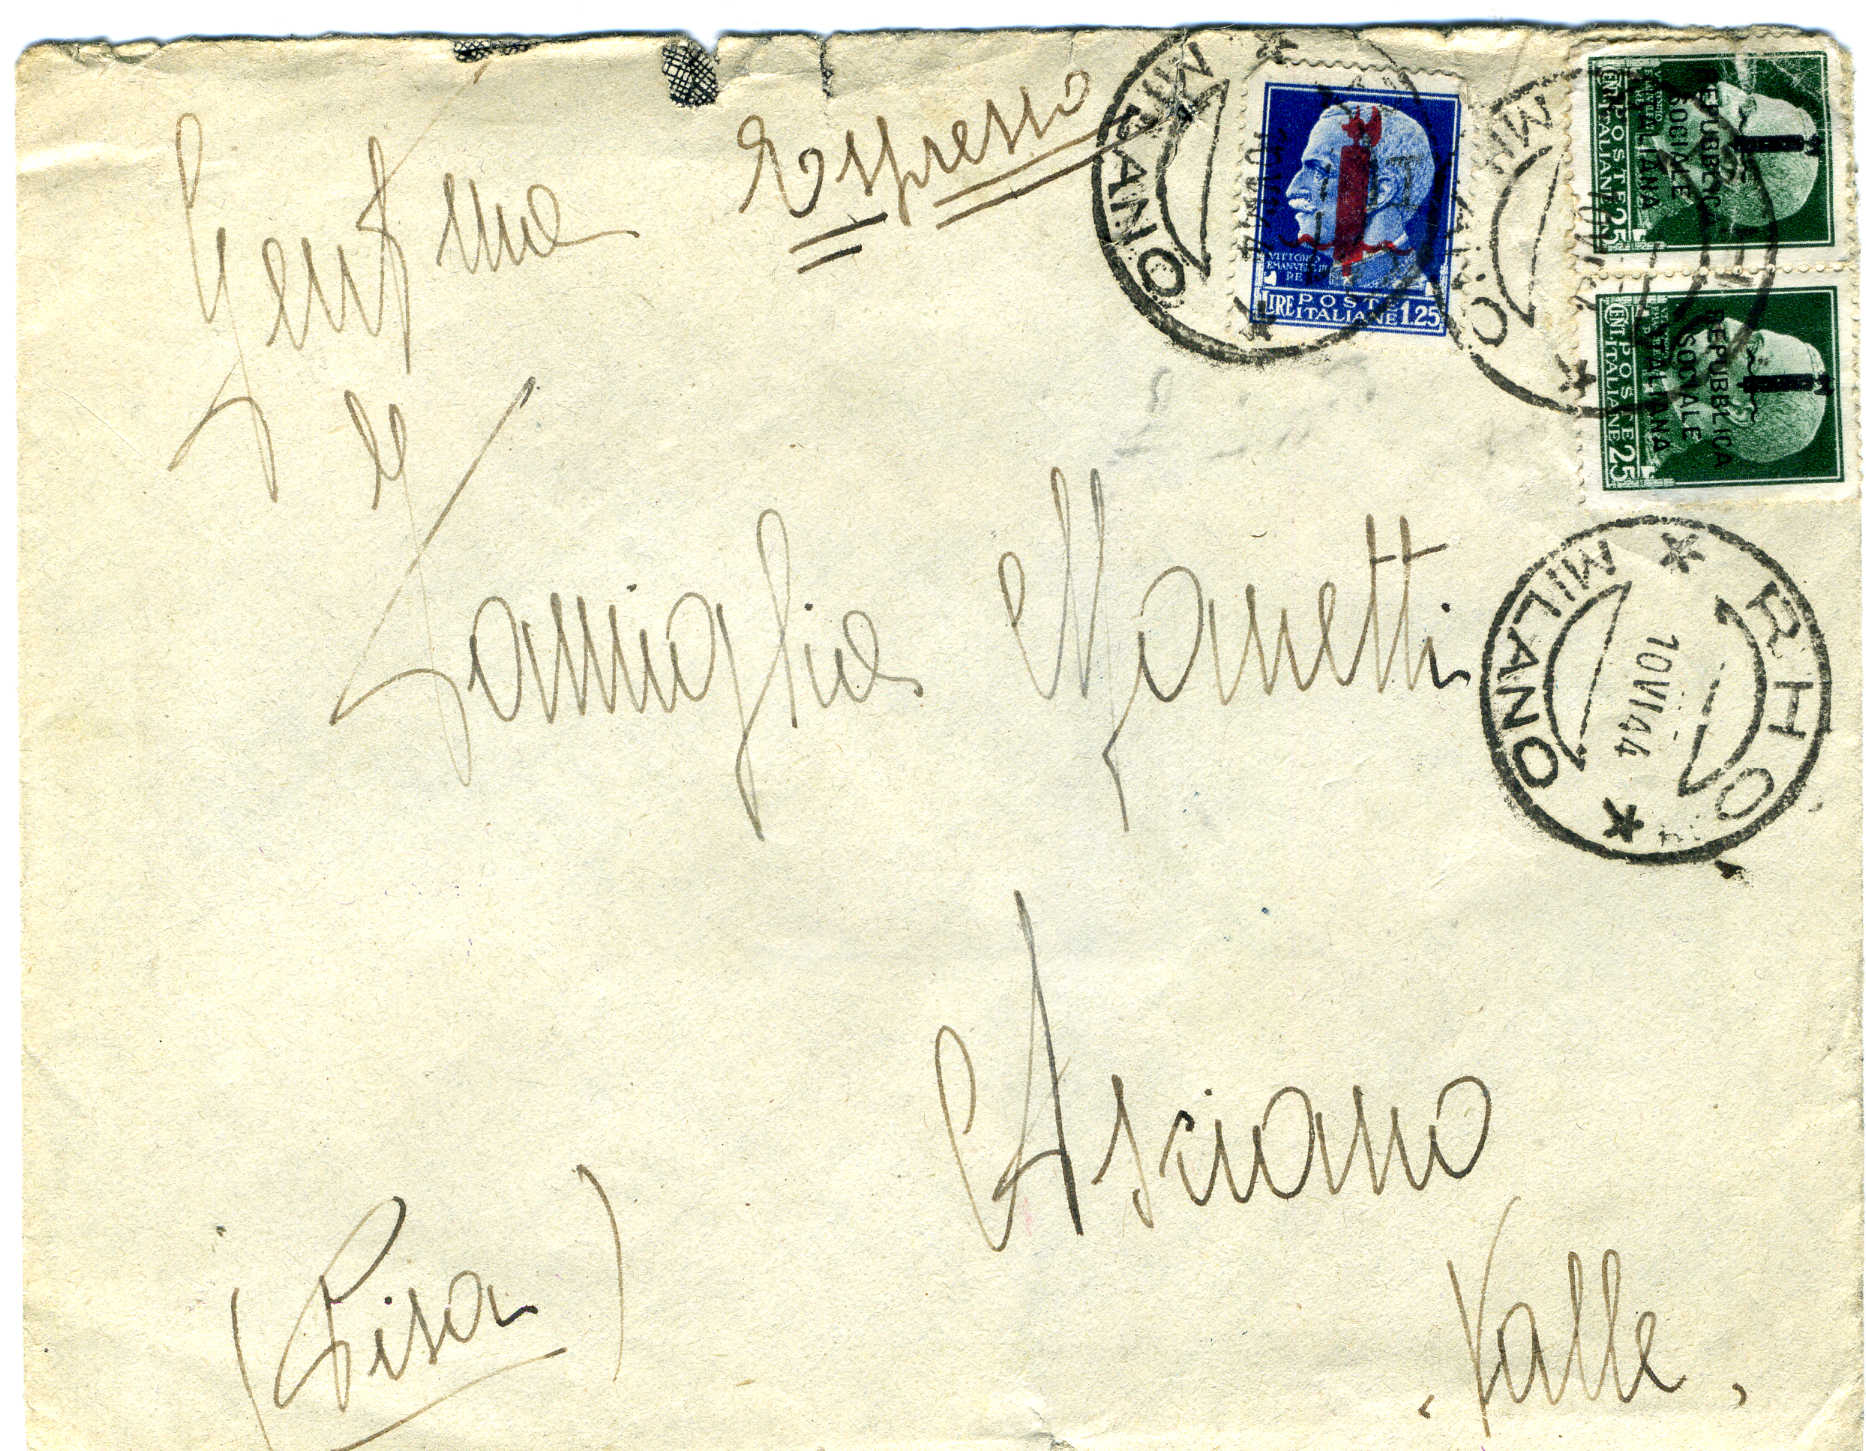 Espresso
Gent.ma
Famiglia Manetti
Asciano
Valle
(Pisa)
VITTORIO
EMANUELE III
RE
POSTE
LIRE ITALIANE 1.25
REPUBBLICA
SOCIALE
ITALIANA
POSTE
CENT. ITALIANE 25
REPUBBLICA
SOCIALE
ITALIANA
POSTE
CENT. ITALIANE 25
MILANO
MILANO
RHO
10 VI 44
MILANO